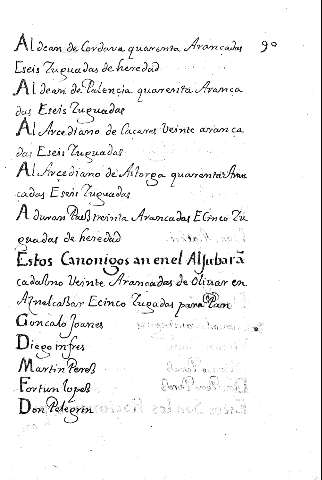 Al dean de Cordova quarenta Arancadas 90
Eseis Zuguadas de heredad
Al dean de Palencia quarenta Aranca
das Eseis Zuguadas
Al Arcediano de Caceres Veinte aranca
das Eseis Zuguadas
Al Arcediano de Astorga quarenta Aran
cadas Eseis Zuguadas
A duran treinta Arancadas E Cinco Zu
guadas de heredad
Estos Canonigos an en el Alsubara
cada uno Veinte Arancadas de Olivar en
Aznelcasar E cinco Zugadas para Pan
Goncalo Joanes
Diego
Martin Pereß
Fortun lopeß
Don Pelegrin